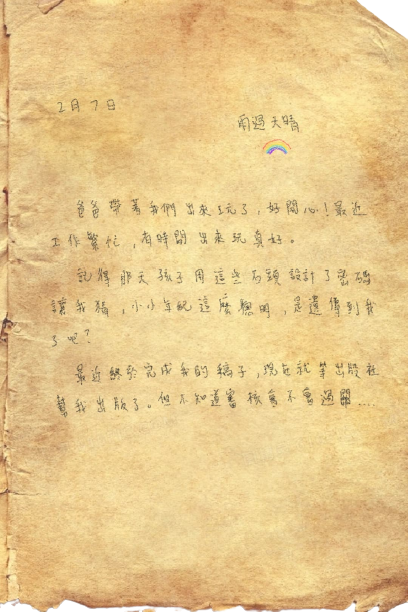 2月7日
雨過天晴
爸爸帶著我們出來玩了，好開心！最近
工作繁忙，有時間出來玩真好。
記得昨天孩子用這些石頭設計了密碼
讓我猜，小小年紀這麼聰明，是遺傳到我
了吧？
最近終於完成我的稿子，現在就等出版社
幫我出版了。但不知道審核會不會過關....